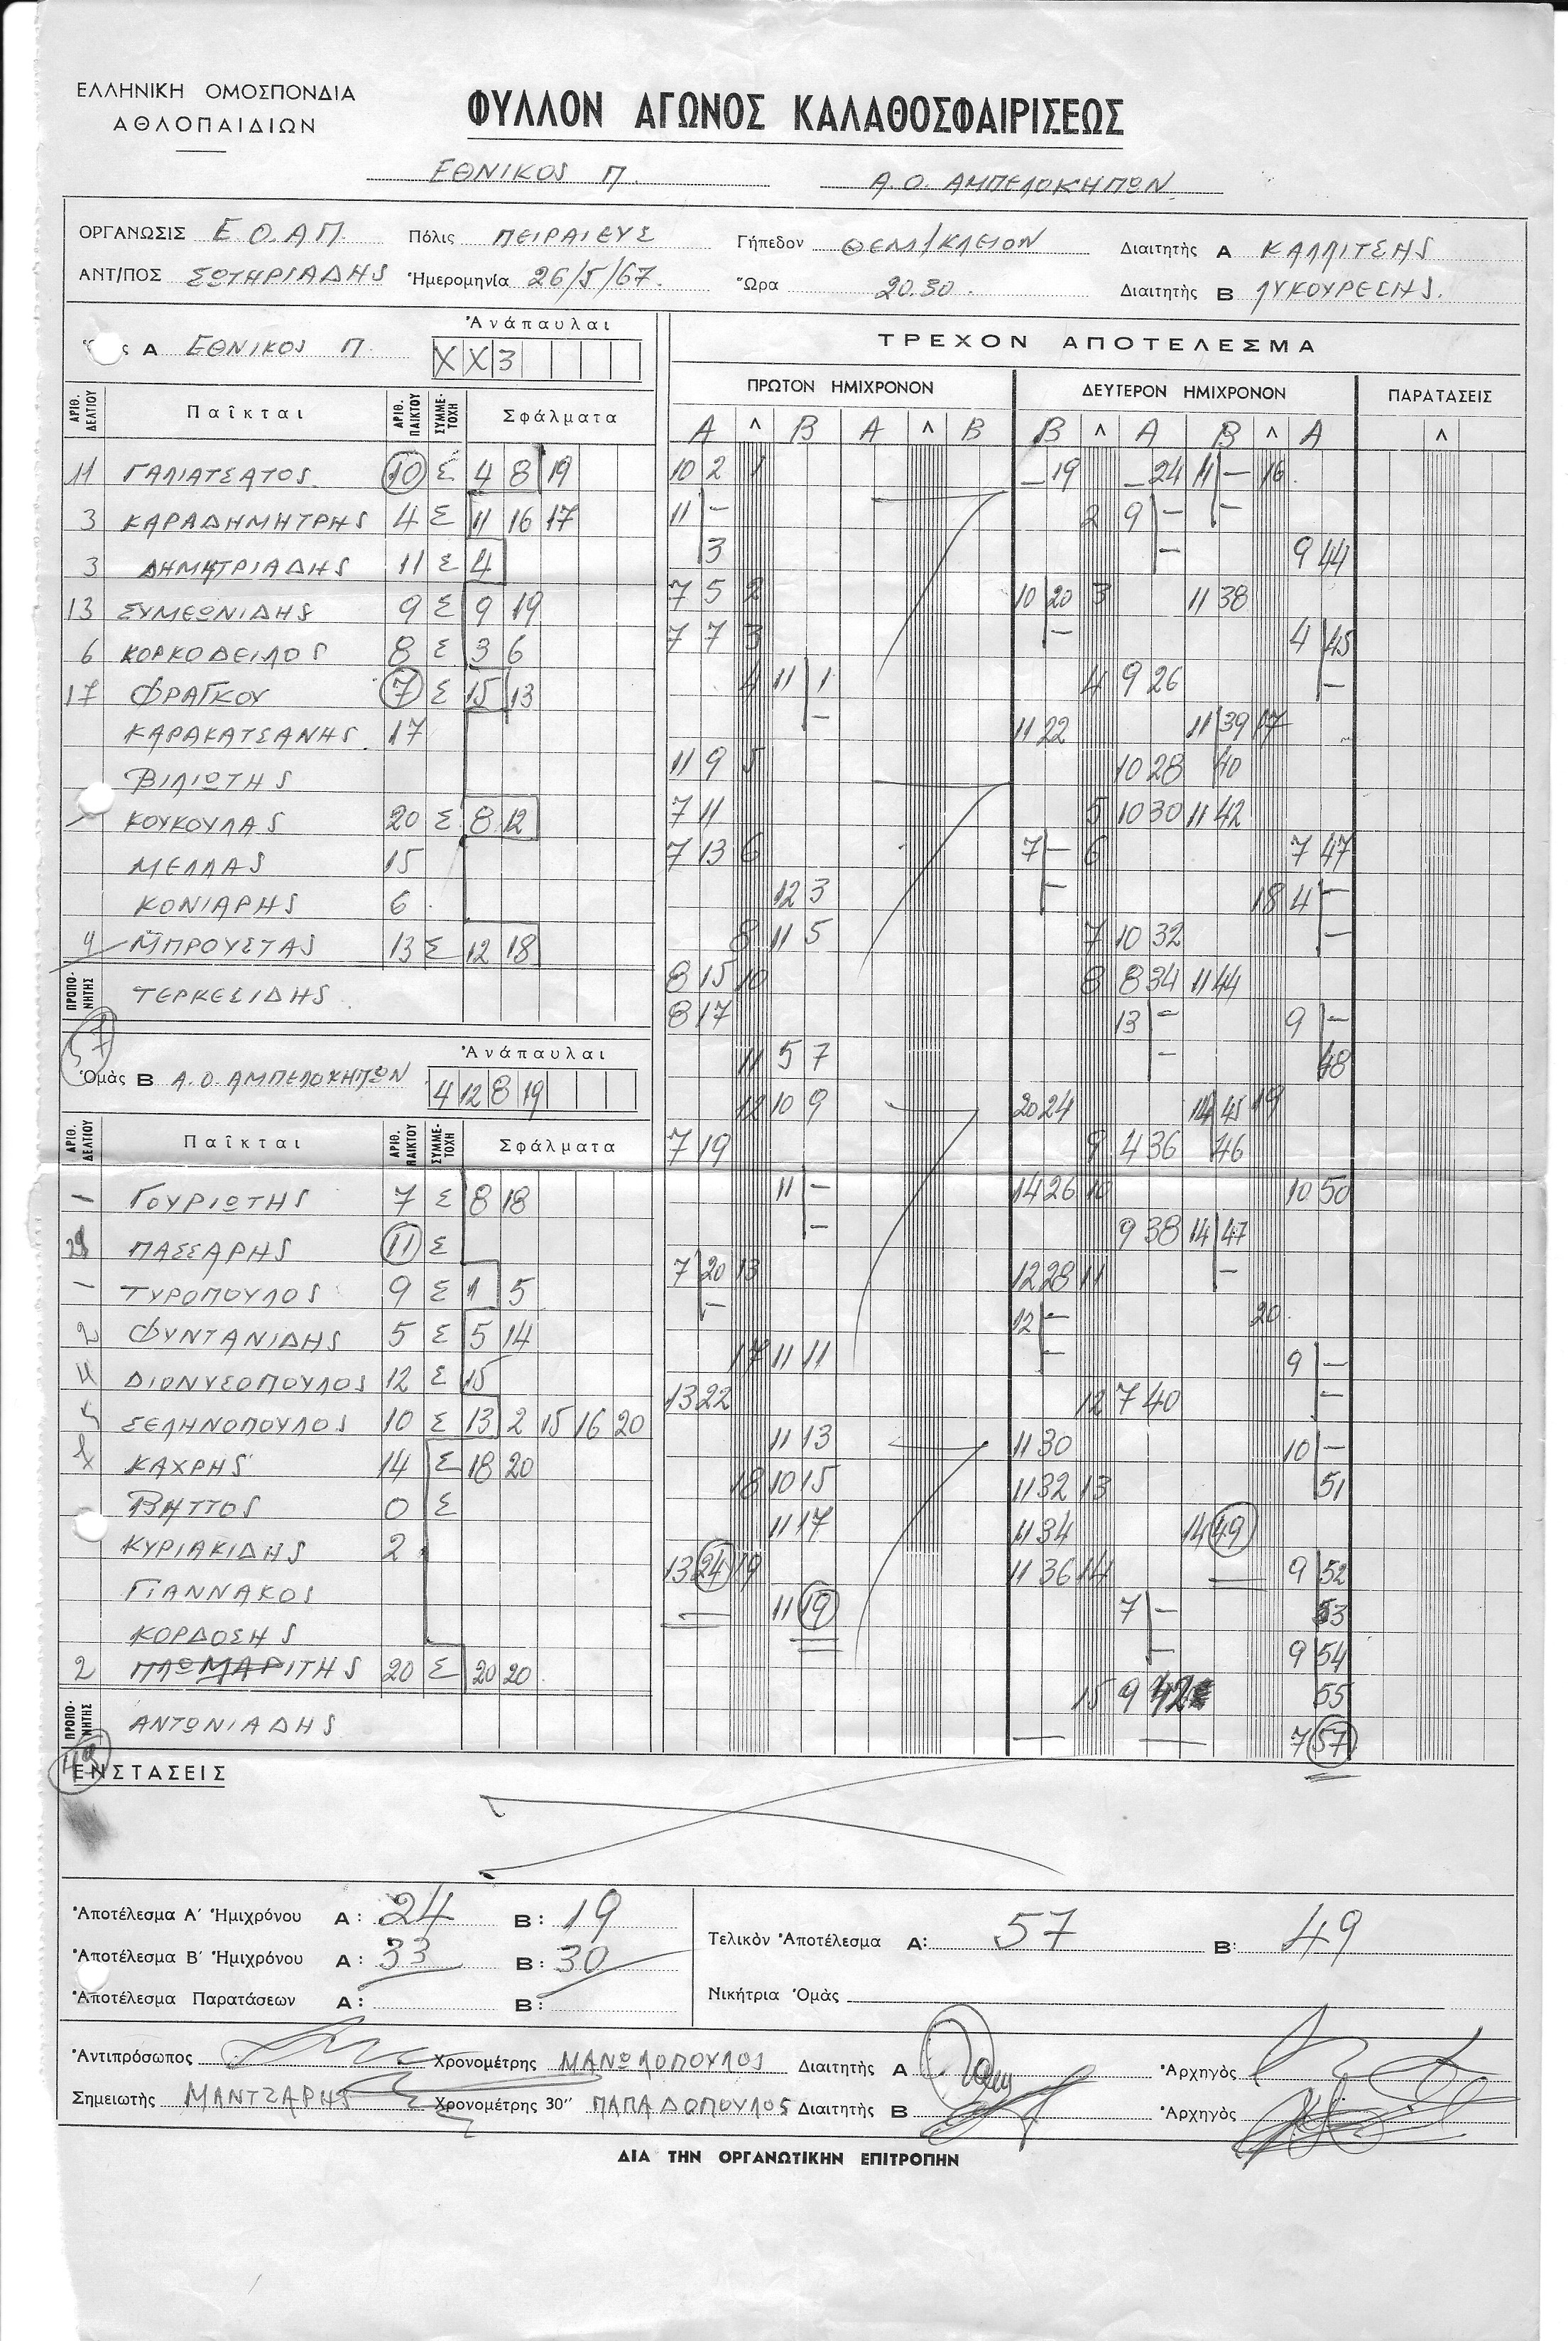 ΕΛΛΗΝΙΚΗ ΟΜΟΣΠΟΝΔΙΑ
ΑΘΛΟΠΑΙΔΙΩΝ
ΦΥΛΛΟΝ ΑΓΩΝΟΣ ΚΑΛΑΘΟΣΦΑΙΡΙΣΕΩΣ
ΕΘΝΙΚΟΣ Π. Α.Ο. ΑΜΠΕΛΟΚΗΠΩΝ
ΟΡΓΑΝΩΣΙΣ Ε.Ο.ΑΠ. Πόλις ΠΕΙΡΑΙΕΥΣ Γήπεδον ΘΕΜ/ΚΛΕΙΟΝ Διαιτητὴς Α ΚΑΛΛΙΤΣΗΣ
ΑΝΤ/ΠΟΣ ΣΩΤΗΡΙΑΔΗΣ Ἡμερομηνία 26/5/67. Ὥρα 20.30. Διαιτητὴς Β ΛΥΚΟΥΡΕΣΗΣ.
Α ΕΘΝΙΚΟΣ Π. Ἀνάπαυλαι X X 3
ΤΡΕΧΟΝ ΑΠΟΤΕΛΕΣΜΑ
ΠΡΩΤΟΝ ΗΜΙΧΡΟΝΟΝ ΔΕΥΤΕΡΟΝ ΗΜΙΧΡΟΝΟΝ ΠΑΡΑΤΑΣΕΙΣ
ΑΡΙΘ. ΔΕΛΤΙΟΥ Παῖκται ΑΡΙΘ. ΠΑΙΚΤΟΥ ΣΥΜΜΕΤΟΧΗ Σφάλματα
Α Λ Β Α Λ Β Β Λ Α Β Λ Α Λ
11 ΓΑΛΙΑΤΣΑΤΟΣ 10 Σ 4 8 19
3 ΚΑΡΑΔΗΜΗΤΡΗΣ 4 Σ 11 16 17
3 ΔΗΜΗΤΡΙΑΔΗΣ 11 Σ 4
13 ΣΥΜΕΩΝΙΔΗΣ 9 Σ 9 19
6 ΚΟΡΚΟΔΕΙΛΟΣ 8 Σ 3 6
17 ΦΡΑΓΚΟΥ 7 Σ 15 13
ΚΑΡΑΚΑΤΣΑΝΗΣ 17
ΒΙΛΙΩΤΗΣ
ΚΟΥΚΟΥΛΑΣ 20 Σ 8 12
ΜΕΛΛΑΣ 15
ΚΟΝΙΑΡΗΣ 6
4 ΜΠΡΟΥΣΤΑΣ 13 Σ 12 18
ΠΡΟΠΟΝΗΤΗΣ ΤΕΡΚΕΣΙΔΗΣ
Ὁμὰς Β Α.Ο. ΑΜΠΕΛΟΚΗΠΩΝ Ἀνάπαυλαι 4 12 8 19
ΑΡΙΘ. ΔΕΛΤΙΟΥ Παῖκται ΑΡΙΘ. ΠΑΙΚΤΟΥ ΣΥΜΜΕΤΟΧΗ Σφάλματα
– ΓΟΥΡΙΩΤΗΣ 7 Σ 8 18
29 ΠΑΣΣΑΡΗΣ 11 Σ
– ΤΥΡΟΠΟΥΛΟΣ 9 Σ 1 5
2 ΦΥΝΤΑΝΙΔΗΣ 5 Σ 5 14
4 ΔΙΟΝΥΣΟΠΟΥΛΟΣ 12 Σ 15
ΣΕΛΗΝΟΠΟΥΛΟΣ 10 Σ 13 2 15 16 20
ΚΑΧΡΗΣ 14 Σ 18 20
ΒΗΤΤΟΣ 0 Σ
ΚΥΡΙΑΚΙΔΗΣ 2
ΓΙΑΝΝΑΚΟΣ
ΚΟΡΔΟΣΗΣ
2 ΠΛΩΜΑΡΙΤΗΣ 20 Σ 20 20
ΠΡΟΠΟΝΗΤΗΣ ΑΝΤΩΝΙΑΔΗΣ
10 2 1 – 19 – 24 11 – 16
11 – 2 9 – –
3 – 9 44
7 5 2 10 20 3 11 38
7 7 3 – 4 45
4 11 1 4 9 26 –
– 11 22 11 39 17
11 9 5 10 28 40
7 11 5 10 30 11 42
7 13 6 7 – 6 7 47
12 3 – 18 4 –
8 11 5 7 10 32 –
8 15 10 8 8 34 11 44
8 17 13 – 9 –
11 5 7 – 48
12 10 9 20 24 14 45 19
7 19 9 4 36 46
11 – 14 26 10 10 50
– 9 38 14 47
7 20 13 12 28 11 –
– 12 – 20
17 11 11 – 9 –
13 22 12 7 40 –
11 13 11 30 10 –
18 10 15 11 32 13 51
11 17 11 34 14 49
13 24 19 11 36 14 9 52
11 19 7 – 53
– 9 54
15 9 42 55
7 57
ΕΝΣΤΑΣΕΙΣ
Ἀποτέλεσμα Α΄ Ἡμιχρόνου Α: 24 Β: 19
Ἀποτέλεσμα Β΄ Ἡμιχρόνου Α: 33 Β: 30
Ἀποτέλεσμα Παρατάσεων Α: Β:
Τελικὸν Ἀποτέλεσμα Α: 57 Β: 49
Νικήτρια Ὁμὰς
Ἀντιπρόσωπος Χρονομέτρης ΜΑΝΩΛΟΠΟΥΛΟΣ Διαιτητὴς Α Ἀρχηγὸς
Σημειωτὴς ΜΑΝΤΖΑΡΗΣ Χρονομέτρης 30″ ΠΑΠΑΔΟΠΟΥΛΟΣ Διαιτητὴς Β Ἀρχηγὸς
ΔΙΑ ΤΗΝ ΟΡΓΑΝΩΤΙΚΗΝ ΕΠΙΤΡΟΠΗΝ